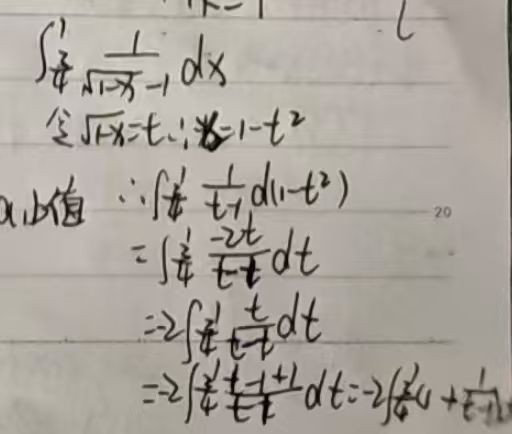 ∫_{3/4}^{1} 1/(√(1-x) -1) dx
令√(1-x)=t ∴x=1-t²
a,b值 ∴∫_{3/4}^{1} 1/(t-1) d(1-t²)
20
=∫_{3/4}^{1} -2t/(t-1) dt
=-2∫_{3/4}^{1} t/(t-1) dt
=-2∫_{3/4}^{1} (t-1+1)/(t-1) dt=-2∫_{3/4}^{1}(1+1/(t-1))